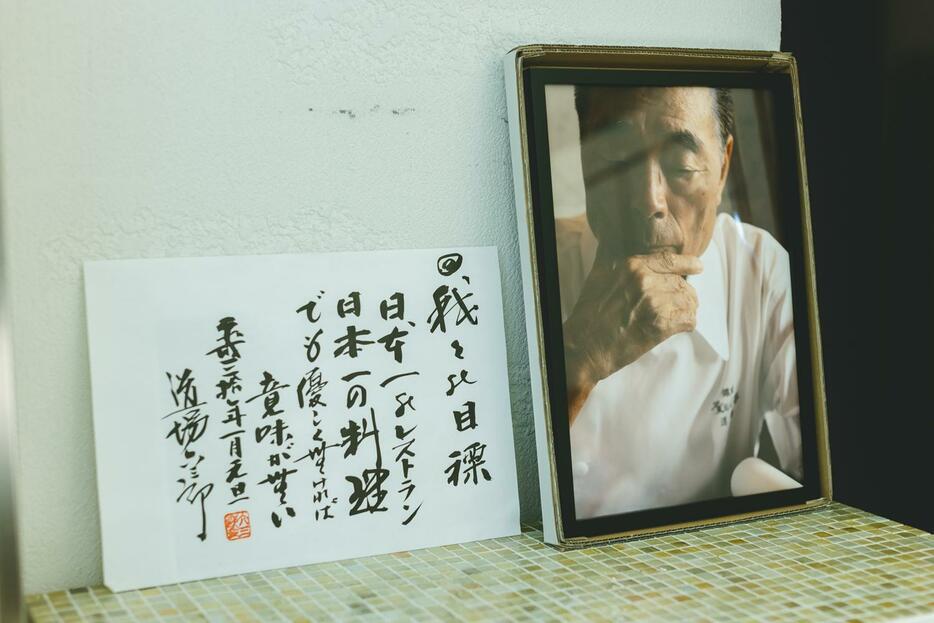 ◎、我々の目標
日本一のレストラン
日本一の料理
でも優しく無ければ
意味が無い
年一月元旦
道場六三郎